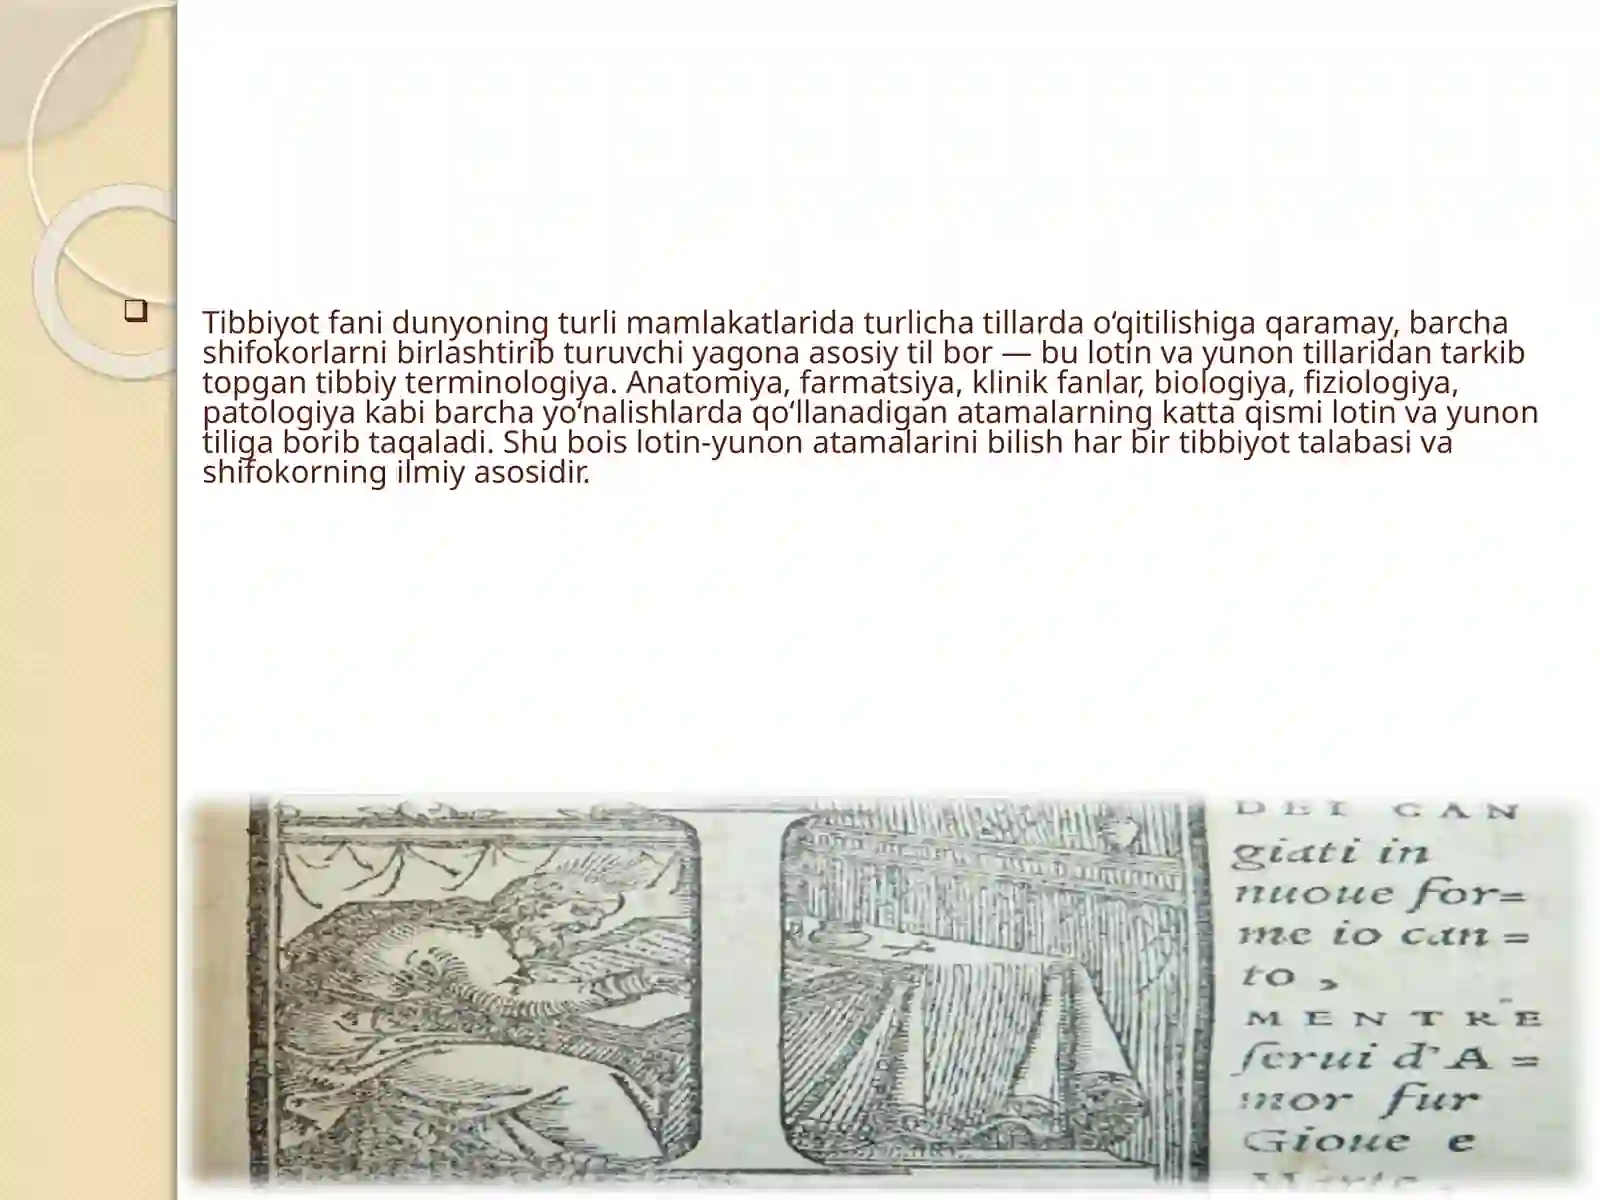 Tibbiyot fani dunyoning turli mamlakatlarida turlicha tillarda o‘qitilishiga qaramay, barcha
shifokorlarni birlashtirib turuvchi yagona asosiy til bor — bu lotin va yunon tillaridan tarkib
topgan tibbiy terminologiya. Anatomiya, farmatsiya, klinik fanlar, biologiya, fiziologiya,
patologiya kabi barcha yo‘nalishlarda qo‘llanadigan atamalarning katta qismi lotin va yunon
tiliga borib taqaladi. Shu bois lotin-yunon atamalarini bilish har bir tibbiyot talabasi va
shifokorning ilmiy asosidir.
DEI CAN
giati in
nuoue for=
me io can =
to ,
MENTRE
ſerui d’A =
mor fur
Gioue e